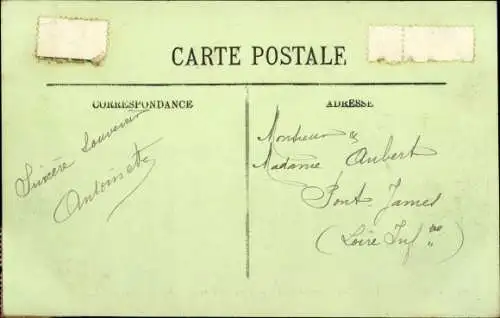 CARTE POSTALE
CORRESPONDANCE
ADRESSE
Sincère Souvenir
Antoinette
Monsieur &
Madame Aubert
Pont-James
(Loire Infre)